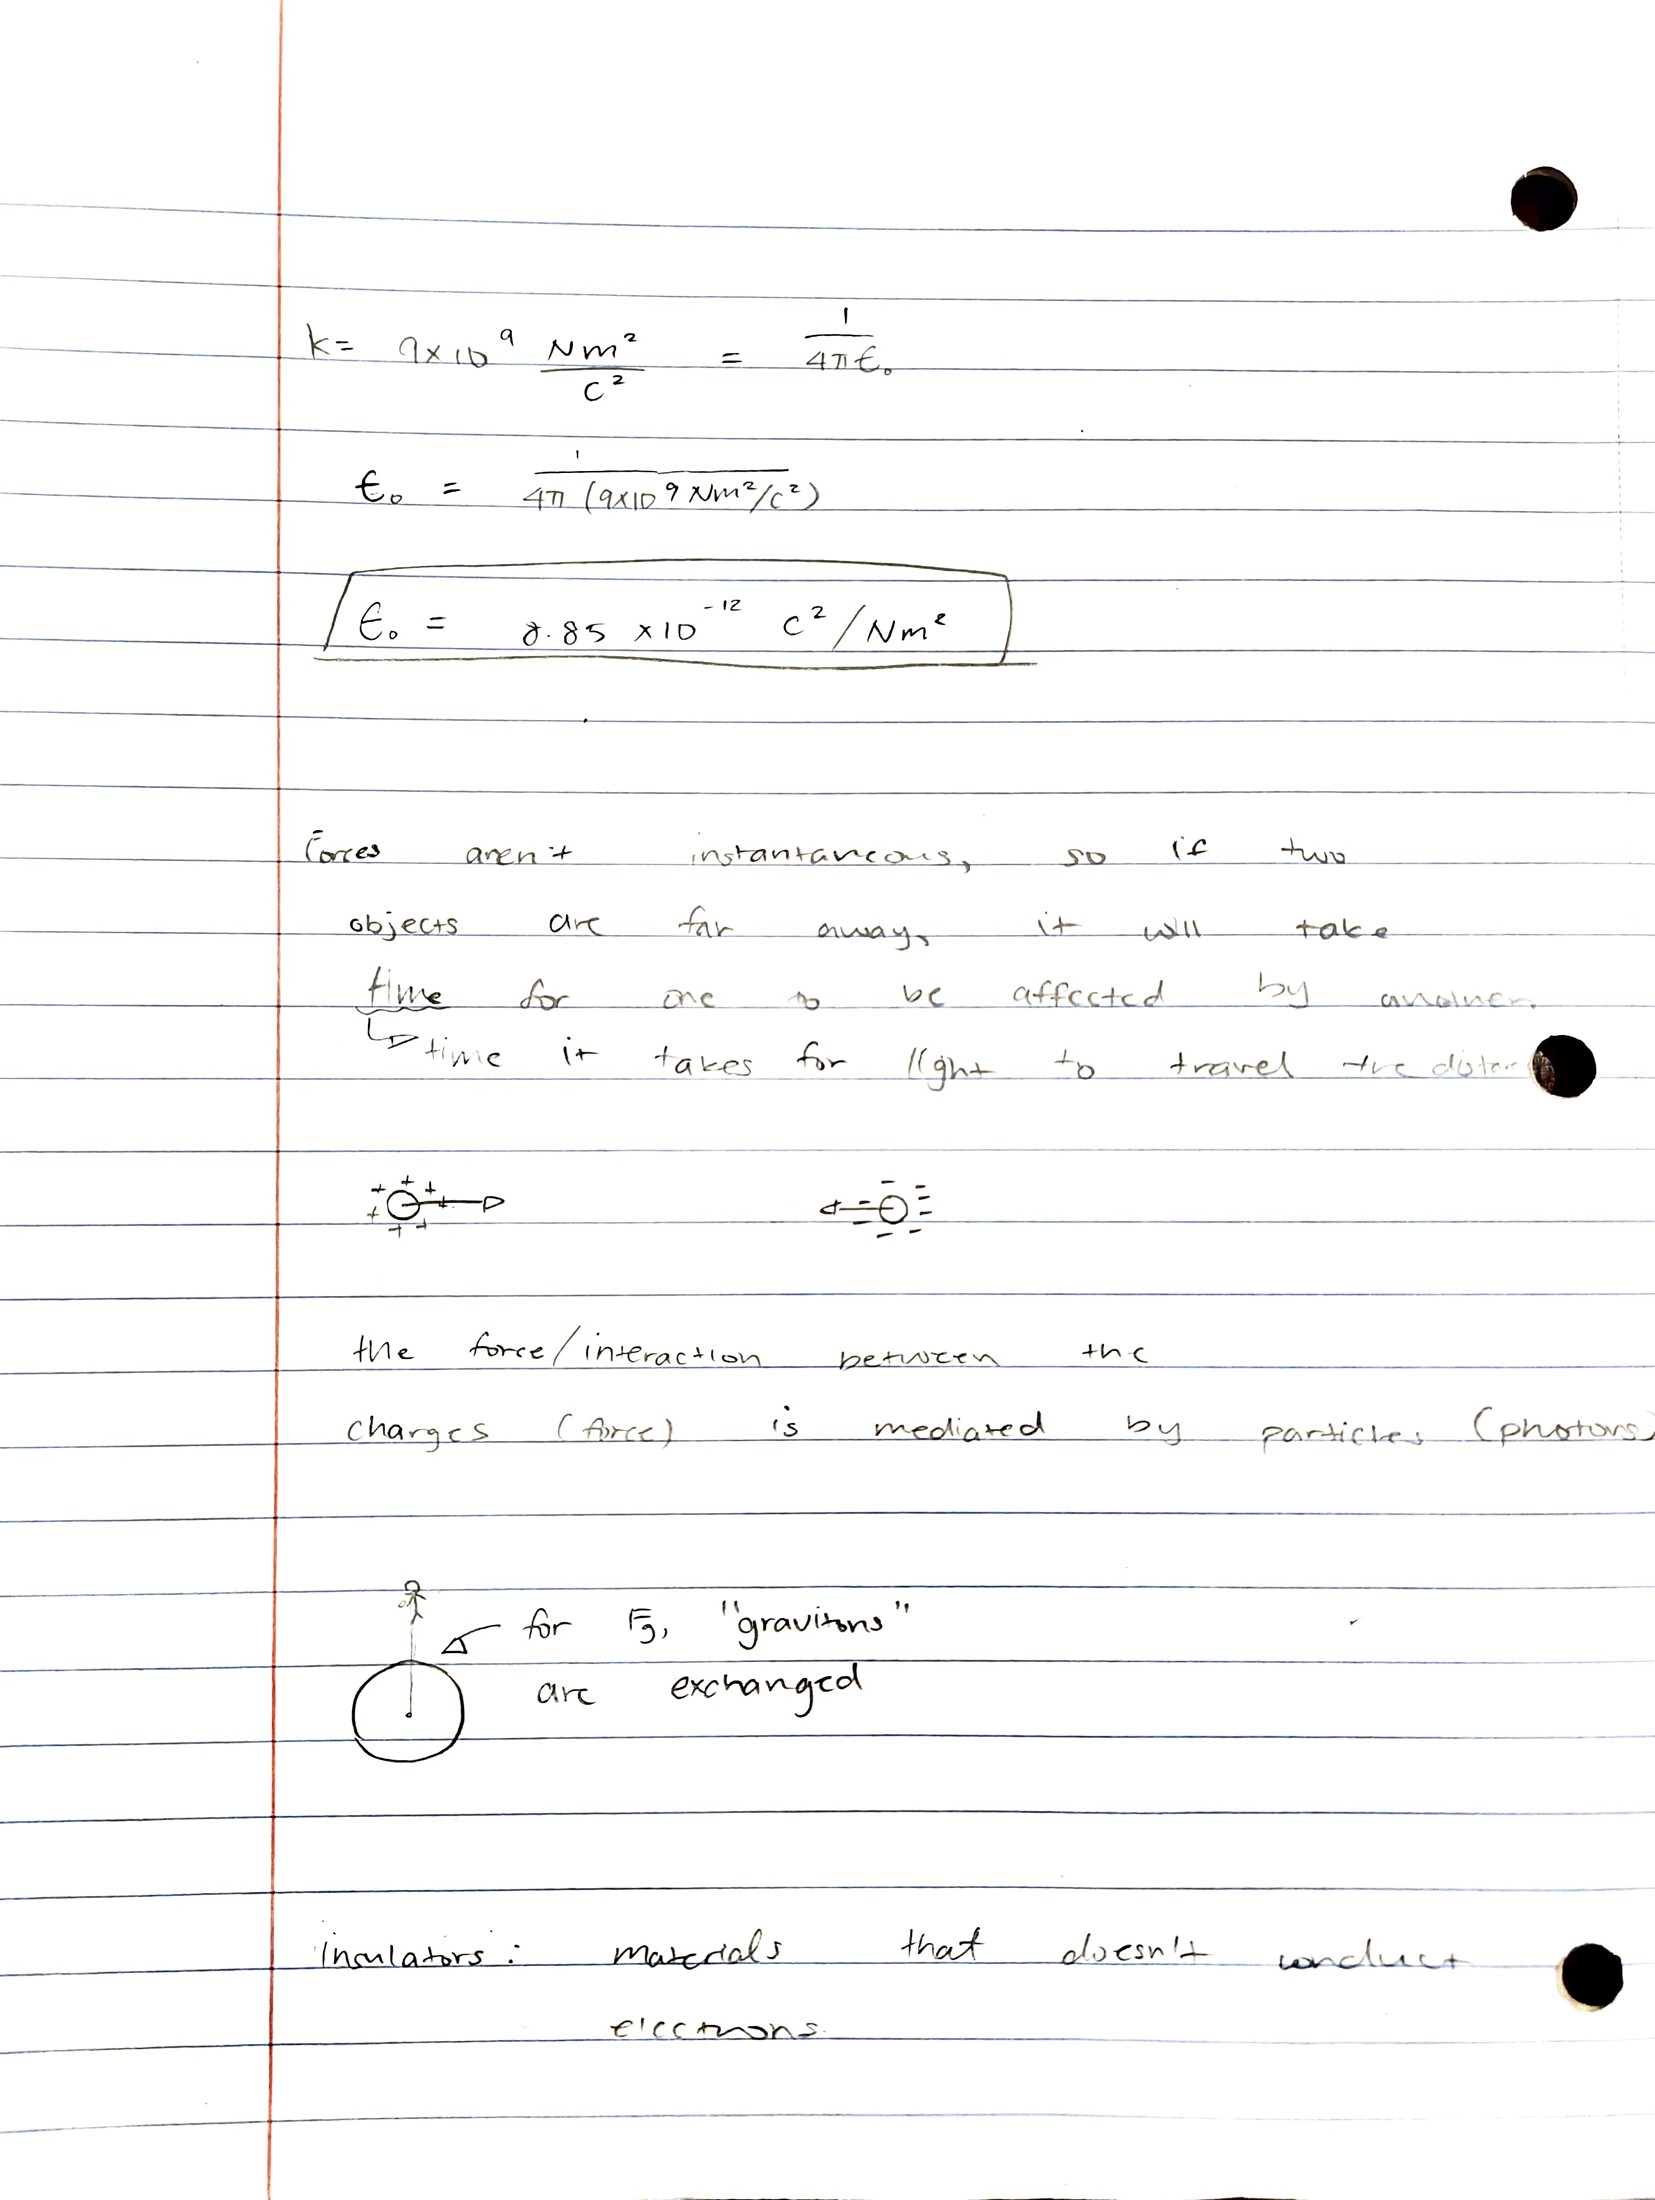 k = 9×10⁹ Nm²/C² = 1/4πϵ₀
ϵ₀ = 1/4π (9×10⁹ Nm²/C²)
ϵ₀ = 8.85 ×10⁻¹² C²/Nm²
Forces aren't instantaneous, so if two
objects are far away, it will take
time for one to be affected by another.
time it takes for light to travel the
+ + + + + + + − − − − − − − −
the force/interaction between the
charges (force) is mediated by particles (photons)
for Fg, "gravitons"
are exchanged
insulators: materials that doesn't conduct
electrons.